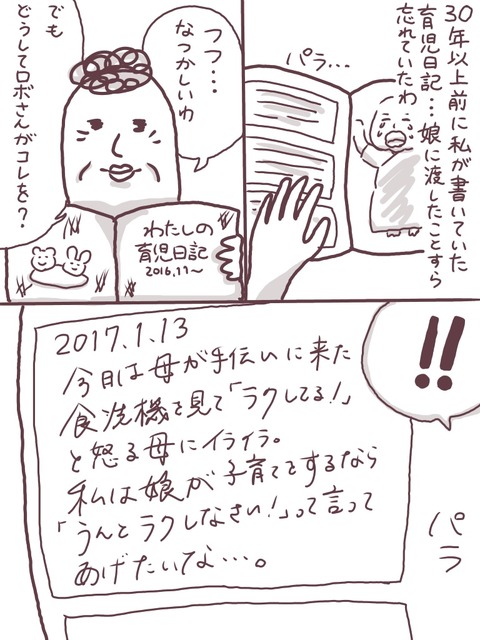 30年以上前に私が書いていた
育児日記…娘に渡したことすら
忘れていたわ
パラ…
フフ…
なつかしいわ
でも
どうしてロボさんがコレを？
わたしの
育児日記
2016.11〜
!!
2017.1.13
今日は母が手伝いに来た
食洗機を見て「ラクしてる!」
と怒る母にイライラ。
私は娘が子育てをするなら
「うんとラクしなさい!」って言って
あげたいな…。
パラ